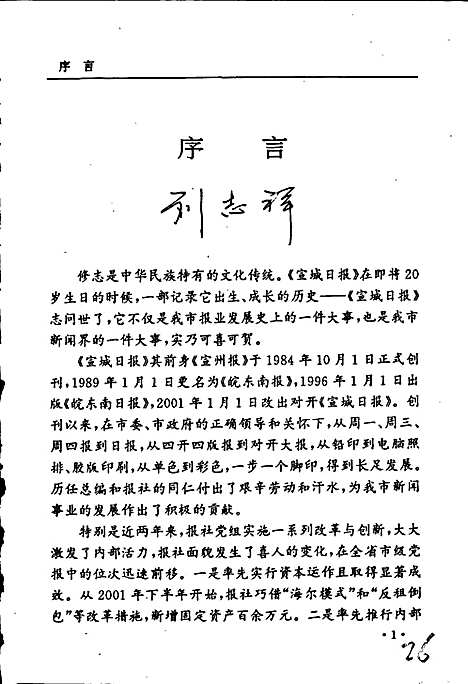 序 言
序 言
刘志祥
修志是中华民族特有的文化传统。《宣城日报》在即将20
岁生日的时候，一部记录它出生、成长的历史——《宣城日报》
志问世了，它不仅是我市报业发展史上的一件大事，也是我市
新闻界的一件大事，实乃可喜可贺。
《宣城日报》其前身《宣州报》于1984年10月1日正式创
刊，1989年1月1日更名为《皖东南报》，1996年1月1日出
版《皖东南日报》，2001年1月1日改出对开《宣城日报》。创
刊以来，在市委、市政府的正确领导和关怀下，从周一、周三、
周四报到日报，从四开四版报到对开大报，从铅印到电脑照
排、胶版印刷，从单色到彩色，一步一个脚印，得到长足发展。
历任总编和报社的同仁付出了艰辛劳动和汗水，为我市新闻
事业的发展作出了积极的贡献。
特别是近两年来，报社党组实施一系列改革与创新，大大
激发了内部活力，报社面貌发生了喜人的变化，在全省市级党
报中的位次迅速前移。一是率先实行资本运作且取得显著成
效。从2001年下半年开始，报社巧借“海尔模式”和“反租倒
包”等改革措施，新增固定资产百余万元。二是率先推行内部
·1·
26